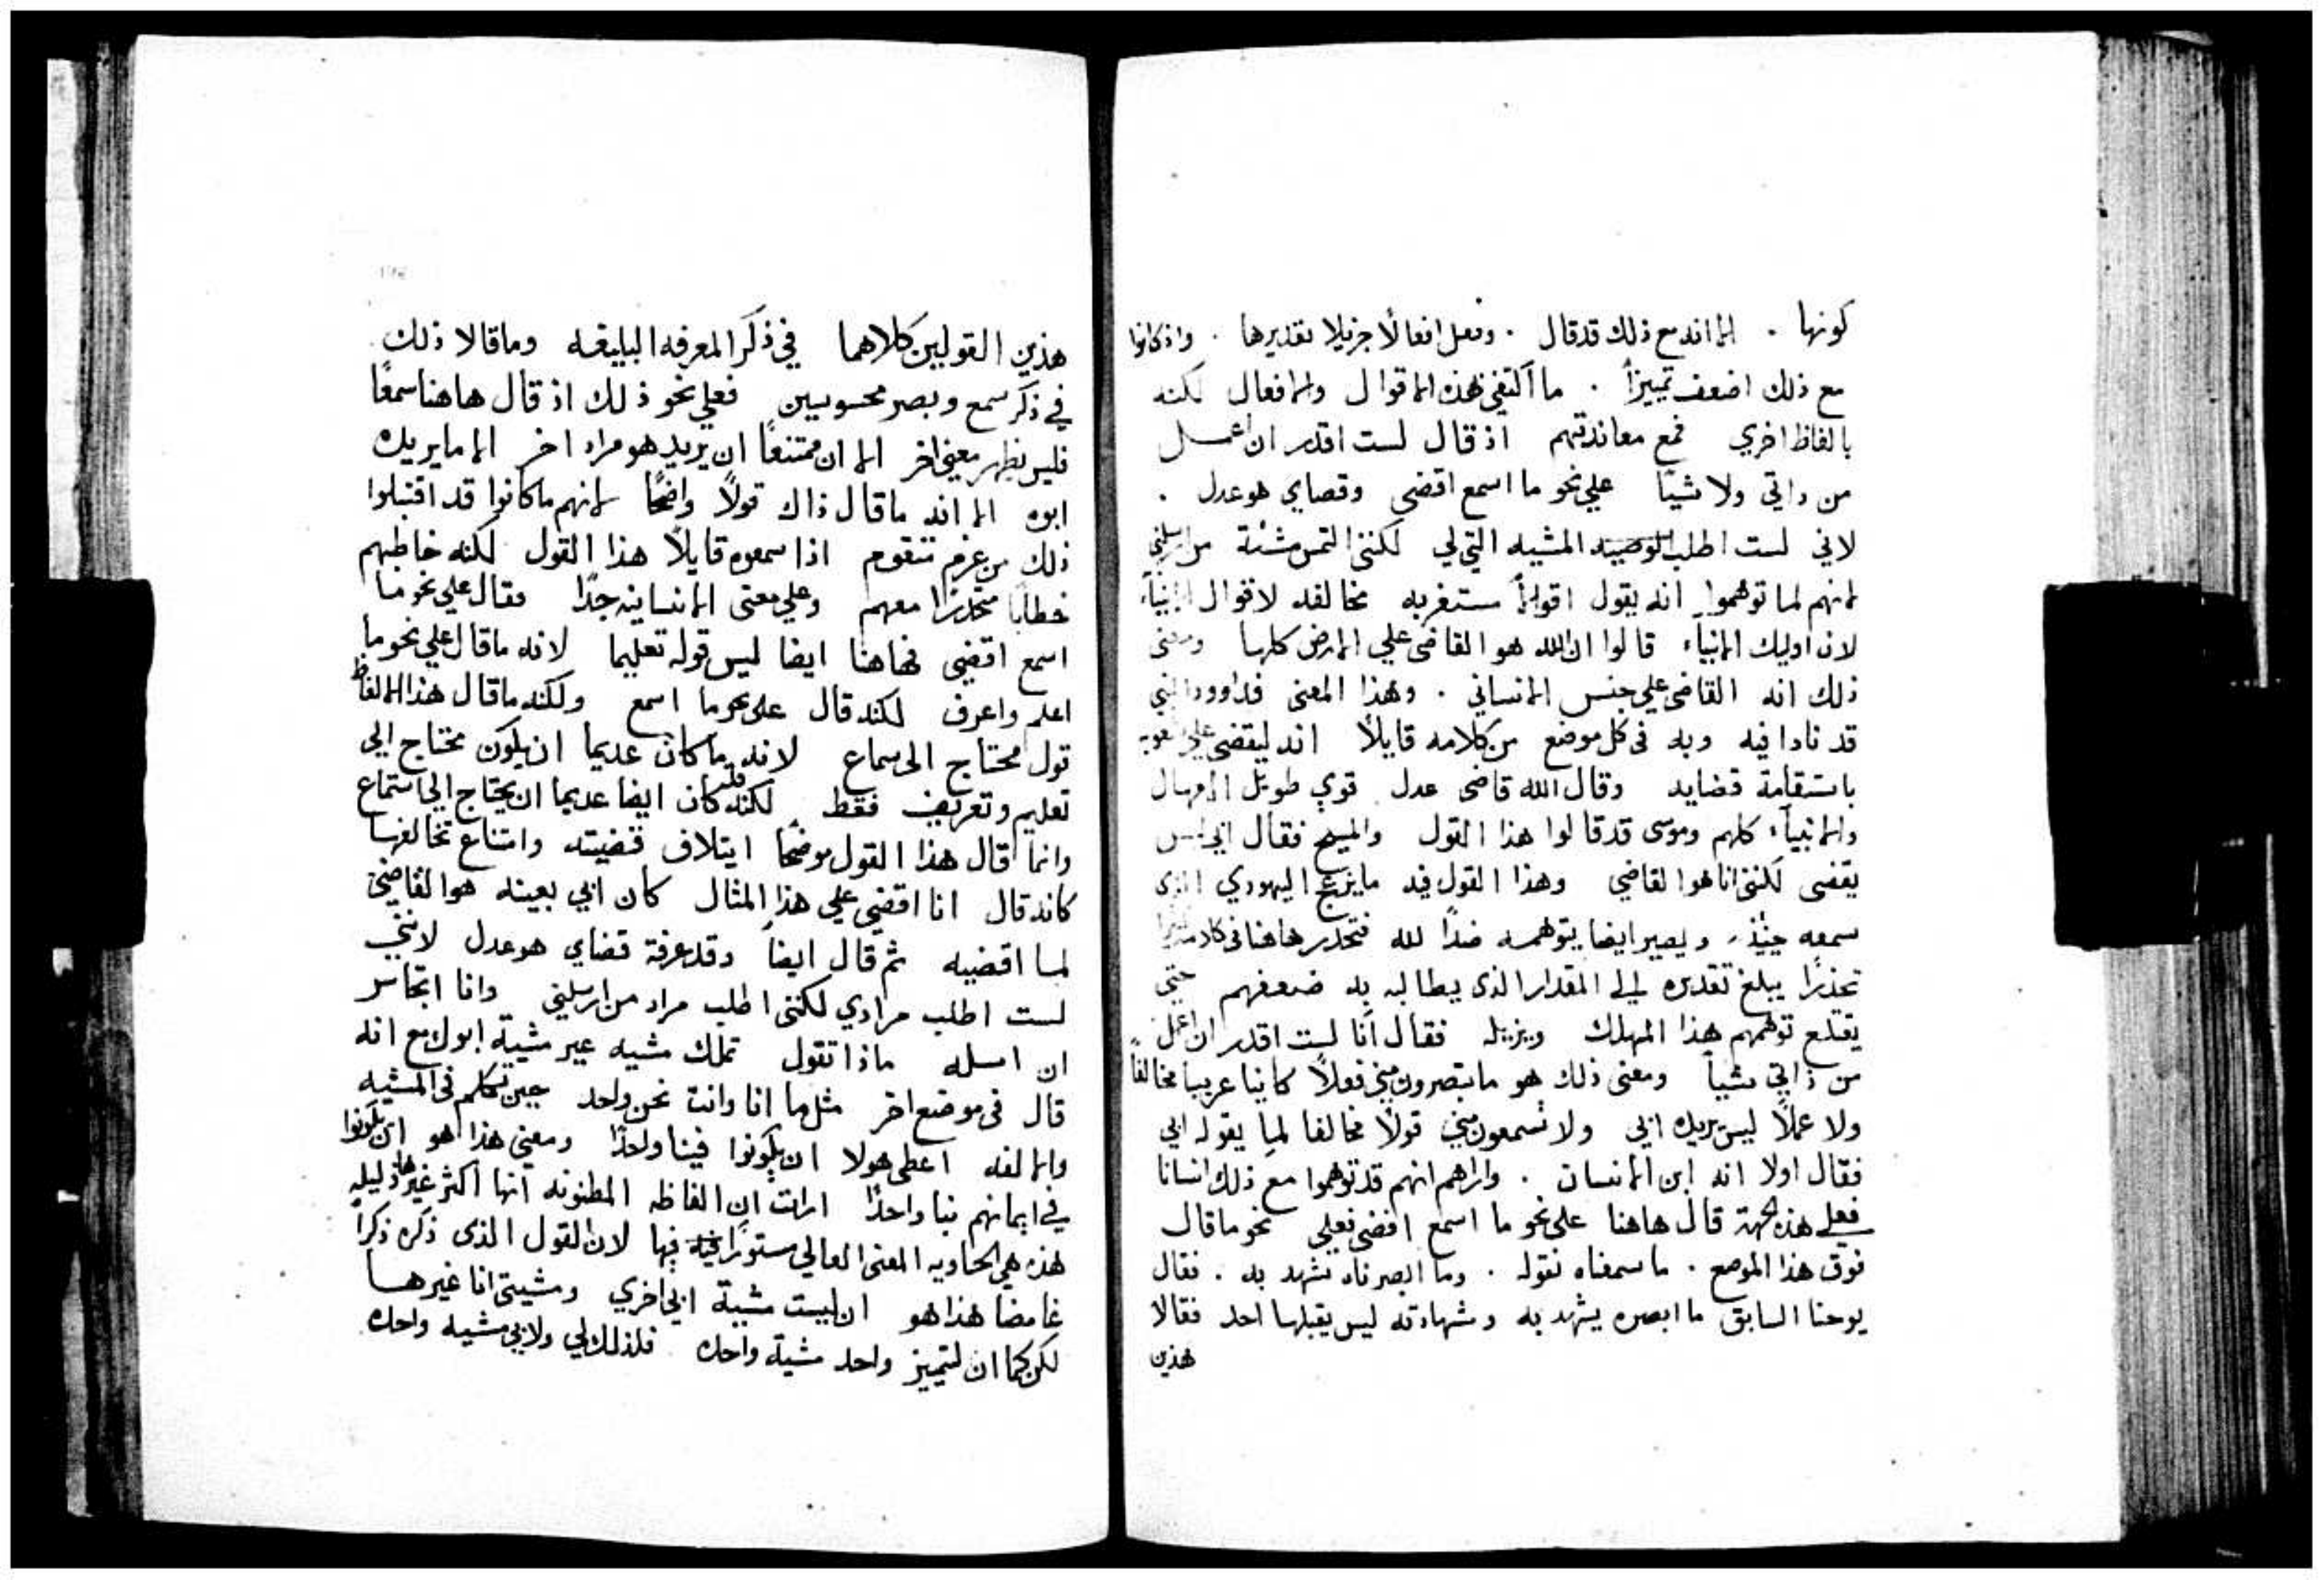 كونها . الا انه مع ذلك قد قال . وفعل افعالًا جزيلا تقديرها . واذ كانوا
مع ذلك اضعف تمييزاً . ما اكتفي بهذه الاقوال والافعال لكنه
بالفاظ اخري قمع معاندتهم اذ قال لست اقدر ان اعمل
من داتي ولا شيًا علي نحو ما اسمع اقضي وقضاي هو عدل .
لاني لست اطلب المشيه التي لي لكنني التمس مشئة من ارسلني
لانهم لما توهموا انه يقول اقوالاً مستغربه مخالفه لاقوال الانبياء
لان اوليك الانبياء قالوا ان الله هو القاضي علي الارض كلها ومعني
ذلك انه القاضي علي جنس الانساني . وهذا المعني فداوود النبي
قد نادا فيه وبه في كل موضع من كلامه قايلاً انه ليقضي علي شعوبه
باستقامة قضايه وقال الله قاضي عدل قوي طويل الامهال
والانبياء كلهم وموسي قد قالوا هذا القول والمسيح فقال ابي ليس
يقضي لكنني انا هوا لقاضي وهذا القول فيه ما يزعج اليهودي الذي
سمعه حينئذ ويصير ايضا يتوهمه ضدًا لله فتحذر هاهنا في كلامه
تحذرًا يبلغ تقديره الي المقدار الذي يطالبه به ضعفهم حتي
يقتلع توهمهم هذا المهلك ويزيله فقال انا لست اقدر ان اعمل
من ذاتي شياً ومعني ذلك هو ما تبصرون مني فعلاً كاينا غريبا مخالفاً
ولا عملًا ليس يريده ابي ولا تسمعون مني قولاً مخالفا لما يقوله ابي
فقال اولا انه ابن الانسان . واراهم انهم قد توهموا مع ذلك انسانا
فعلي هذه الجهة قال هاهنا علي نحو ما اسمع اقضي فعلي نحو ما قال
فوق هذا الموضع . ما سمعناه نقوله . وما ابصرناه نشهد به . فقال
يوحنا السابق ما ابصره يشهد به وشهادته ليس يقبلها احد فقالا
هذين
هذين القولين كلاهما في ذكر المعرفه البليغه وما قالا ذلك
في ذكر سمع وبصر محسوسين فعلي نحو ذلك اذ قال هاهنا سمعًا
فليس يظهر معني اخر الا ان ممتنعاً ان يريد هو مراد اخر الا ما يريده
ابوه الا انه ما قال ذاك قولاً واضحًا لانهم ما كانوا قد اقتبلوا
ذلك من عزم تنقوم اذا سمعوه قايلاً هذا القول لكنه خاطبهم
خطابا متحذرًا معهم وعلي معني الانسانيه جدًا فقال علي نحو ما
اسمع اقضي فهاهنا ايضا ليس قوله تعليما لانه ما قال علي نحو ما
اعلم واعرف لكنه قال علي نحو ما اسمع ولكنه ما قال هذا الالفاظ
قول محتاج الي سماع لانه ما كان عديما ان يكون محتاج الي
تعليم وتعريف فقط لكنه كان ايضا عديما ان يحتاج الي استماع
وانما قال هذا القول موضحًا ايتلاف قضيته وامتناع تخالفها
كانه قال انا اقضي علي هذا المثال كان ابي بعينه هوا لقاضي
لما اقضيه ثم قال ايضاً وقد عرفة قضاي هو عدل لانني
لست اطلب مرادي لكنني اطلب مراد من ارسلني وانا اتجاسر
ان اسله ماذا تقول تملك مشيه غير مشية ابوك مع انه
قال في موضع اخر مثل ما انا وانت نحن واحد حين تكلم في المشيه
والالفه اعطي هولا ان يكونوا فينا واحدًا ومعني هذا هو ان يكونوا
في ايمانهم بنا واحدًا ارات ان الفاظه المظنونه انها اكثر غيرها ذليله
هذه هي الحاويه المعني العالي مستورًا فيها لان القول الذي ذكره ذكراً
غامضا هذا هو ان ليست مشية ابي اخري ومشيتي انا غيرها
لكن كما ان لتمييز واحد مشية واحده فلذلك لي ولابي مشيه واحده